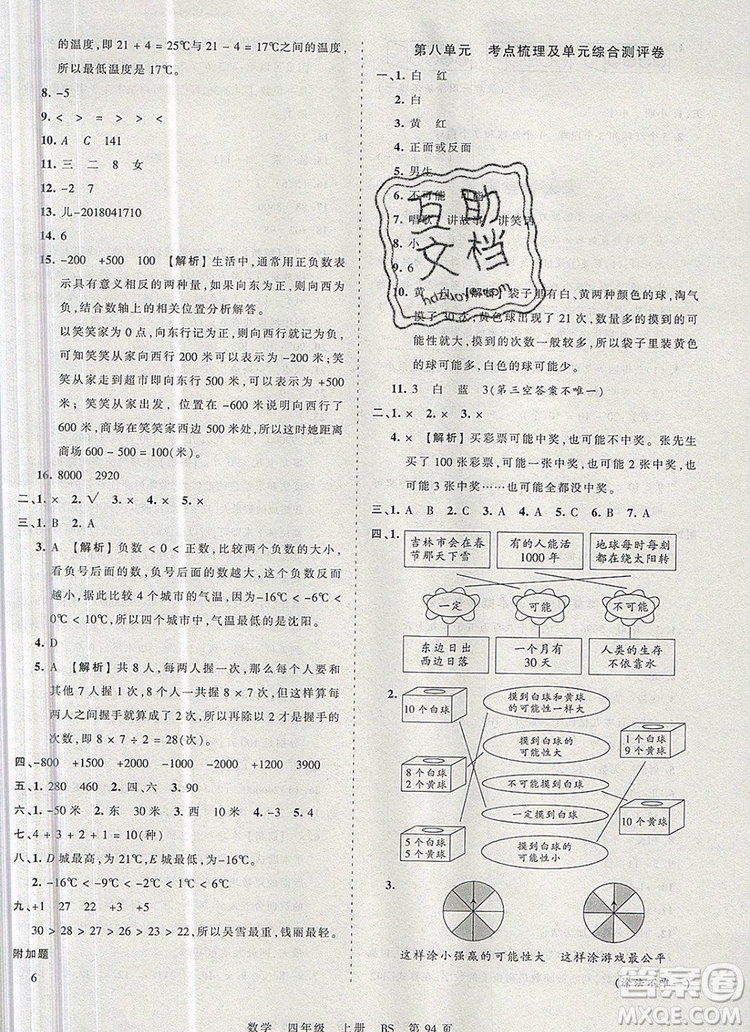 的温度,即 21 + 4 = 25℃与 21 - 4 = 17℃。
所以最低温度是 17℃。
8. -5
9. < > = > > <
10. A C 141
11. 三 二 8 女
12. -2 7
13. 儿-2018041710
14. 6
15. -200 +500 100 【解析】生活中,通常用正负数表
示具有意义相反的两种量,如果向东行记为正,
则向西行就记为负。直接得出结论即可;最后一
问,结合数轴上的相关位置分析解答。
以笑笑家为 0 点,向东行记为正,向西行记为负,
笑笑从家向西走 200 米可以表示为 -200 米;笑
笑从家走到超市一共行 500 米,记作 +500 米;笑
笑从家出发,位置在笑笑家西边 500 米
处;商场在笑笑家西边
所以她现在的位置离商场还有
600 - 500 = 100(米)。
16. 8000 2920
二、1. × 2. √ 3. × 4. × 5. ×
三、1. B 2. A
3. A 【解析】负数 < 0 < 正数,比较两个负数的大小,
看负号后面的数越大,这个负数反而越小,据
此比较 4 个城市的气温,可知 -16℃ < -10℃ <
0℃ < 10℃,所以四个城市中,气温最低的是沈阳。
4. D
5. A 【解析】共 8 人,每两人握一次,每人要握 7 次,
8 人共握手 8 × 7 = 56(次),由于每
两人之间握手就算成了 2 次,所以他们握手的
次数,即 8 × 7 ÷ 2 = 28(次)。
四、-800 +1500 +2000 -1200 +1000
五、1. 280 460 2. 四、六 3. 90
六、1. -50 米 2. 东 30 米 3. 西 20 米 4. 0 米
七、4 + 3 + 2 + 1 = 10(种)
八、1. D 城最高,为 21℃,E 城最低,为 -16℃
2. -16℃ < -9℃ < -2℃ < 6℃ < 21℃
九、+1 27 22 +3 -2 31
30 > 28 > 27 > 26 > 23 > 22,所以吴雪最大,钱丽最轻。
附加题
6
第八单元 考点梳理及单元综合测评卷
一、1. 白 红
2. 白
3. 黄 红
4. 正面或反面
5. 男生
6. 不可能 可能
7. 唱歌 讲故事 讲笑话
8. 小
9. 6
10. 黄 白 【解析】袋子里有白、黄两种颜色的球,淘气
摸了 30 次,黄色球出现了 21 次,次数多的摸到的可
能性就大,摸到的次数一般较多,所以袋子里装黄色
的球可能多,白色的球可能少。
11. 3 白 蓝 3(第三空答案不唯一)
二、1. × 2. × 3. ×
4. × 【解析】买彩票可能中奖,也可能不中奖。张先生
买了 100 张彩票,可能一张中奖,可能二张中奖,也
可能 3 张中奖……也可能全都没中奖。
三、1. A 2. A 3. C 4. A 5. C 6. B 7. A
四、1.
吉林市会在春节那天下雪 有的人能活 1000 年 地球每时每刻在绕太阳转
一定 可能 不可能
东边日出西边日落 一个月有 30 天 人类的生存不依靠水
2.
10 个白球
摸到白球和黄球的可能性一样大
摸到白球的可能性大
1 个白球 9 个黄球
8 个白球 2 个黄球
不可能摸到白球
一定摸到白球
10 个黄球
5 个白球 5 个黄球
摸到白球的可能性小
3.
这样涂小强赢的可能性大 这样涂游戏最公平
(涂法不唯一)
数学 四年级 上册 BS 第 94 页
互助
文档